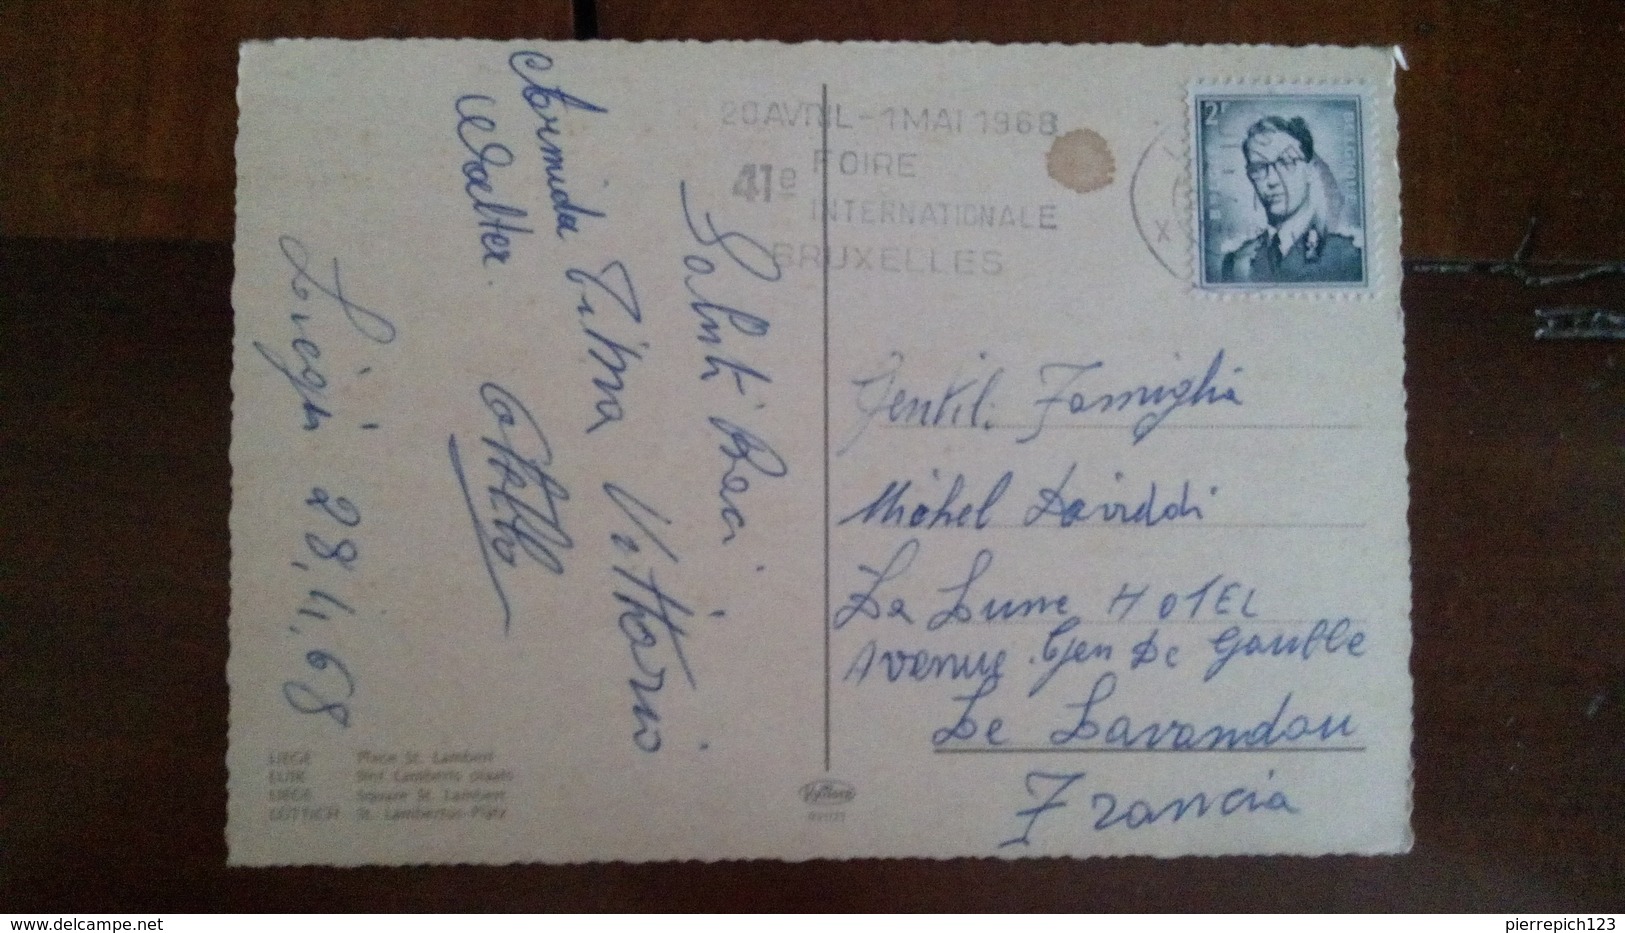 20 AVRIL - 1 MAI 1968
41e FOIRE
INTERNATIONALE
BRUXELLES
2F
Saluti Baci
Armida Tilma Vittorio
Walter.
Liegi 28, 4, 68
Gentil. Famiglia
Michel Daviddi
La Lune HOTEL
Avenue Gen De Gaulle
Le Lavandou
Francia
LIEGE Place St. Lambert
LUIK Sint Lamberts plaats
LIEGE Square St. Lambert
LÜTTICH St. Lambertus-Platz
pierrepich123